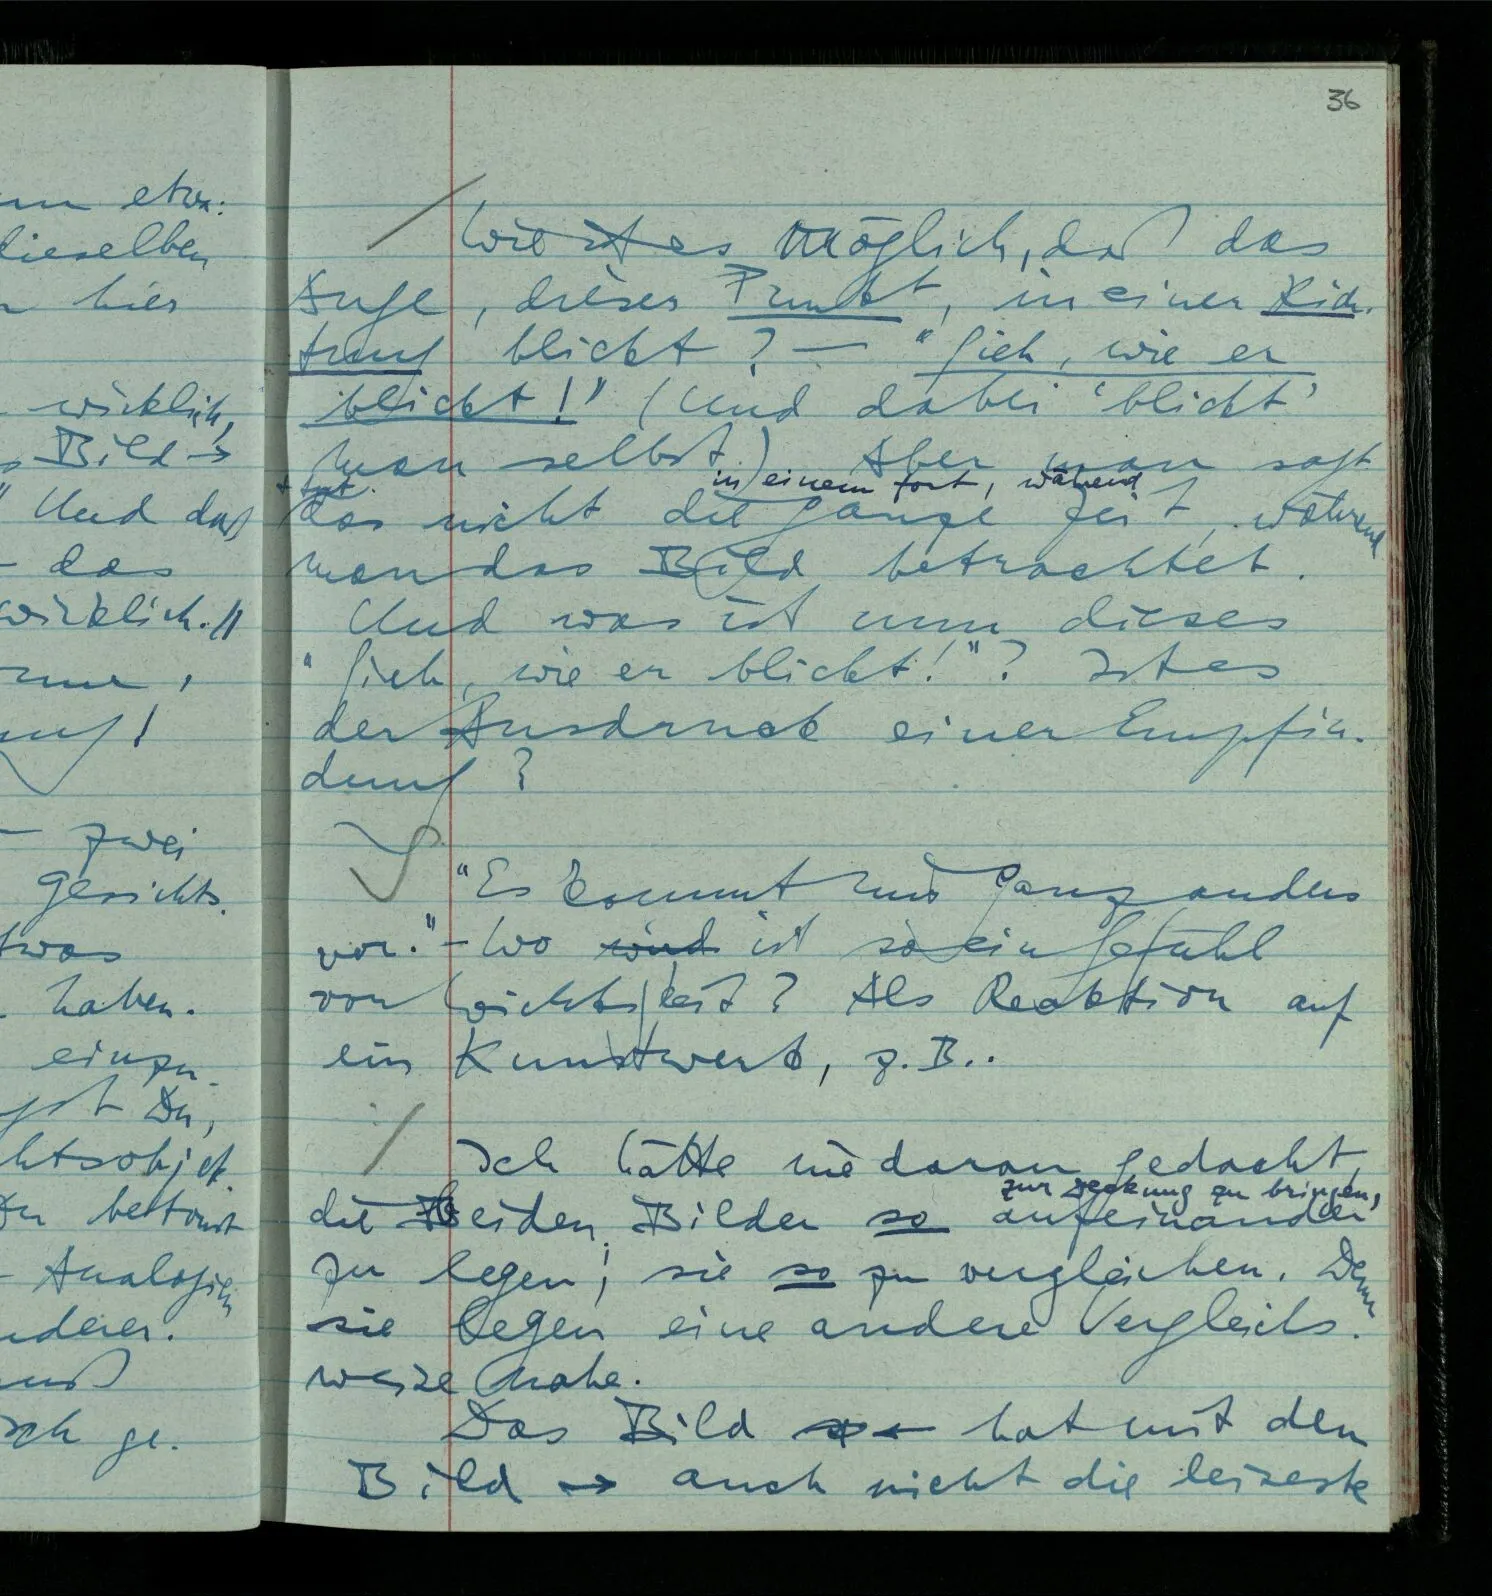 36
um etwa:
dieselben
hier
wirklich,
Bild →
Und daß
- das
wirklich. //
- zwei
Gesichts-
twas
haben.
einzu-
gst Du,
chtsobjekt.
Du betonst
- Analogien
nderer.
muß
sch ge-
/ Wie ist es möglich, daß das
Auge, dieser Punkt, in einer Rich-
tung blickt? — "Sieh, wie er
blickt!" (Und dabei 'blickt'
man selbst.) Aber man sagt
+ tut in einem fort, während
das nicht die ganze Zeit, während
man das Bild betrachtet.
Und was ist nun dieses
"Sieh, wie er blickt!"? Ist es
der Ausdruck einer Empfin-
dung?
"Es kommt uns ganz anders
vor." - Wo wird ist so ein Gefühl
von Wichtigkeit? Als Reaktion auf
ein Kunstwerk, z.B..
/ Ich hätte nie daran gedacht,
zur Deckung zu bringen,
die Beiden Bilder so aufeinander
zu legen; sie so zu vergleichen. Denn
sie legen eine andere Vergleichs-
weise nahe.
Das Bild ← hat mit dem
Bild → auch nicht die leiseste